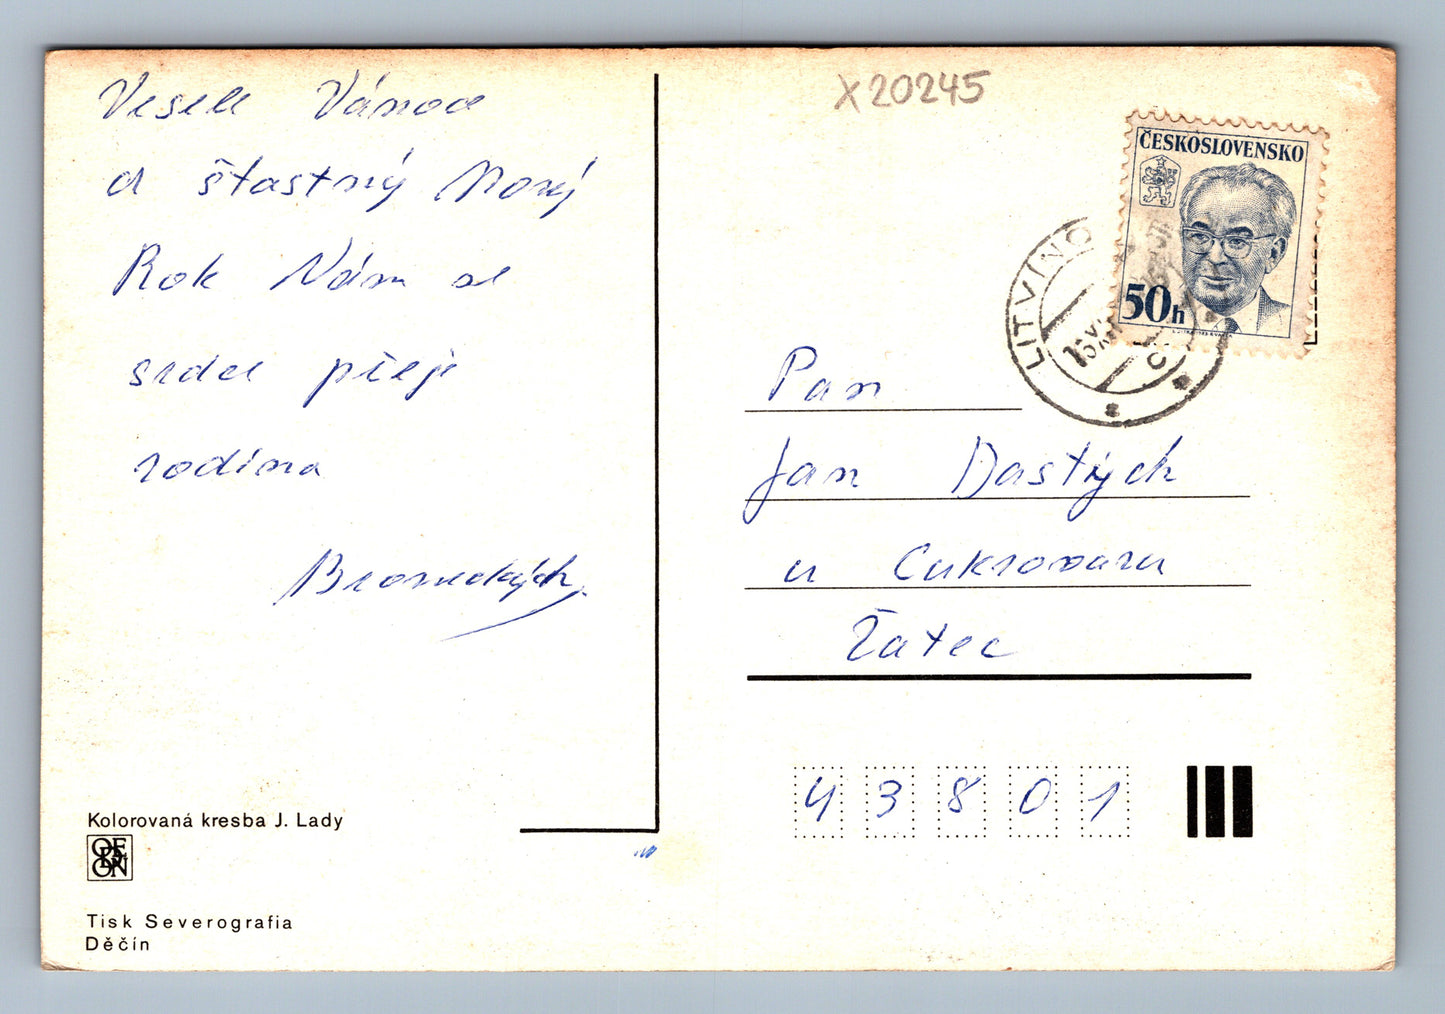 Veselé Vánoce
a štastný Nový
Rok Vám ze
srdce přeje
rodina
X20245
ČESKOSLOVENSKO
50h
LITVÍNO
Pan
Jan Dastých
u Cukrovaru
Žatec
43801
Kolorovaná kresba J. Lady
ODEON
Tisk Severografia
Děčín